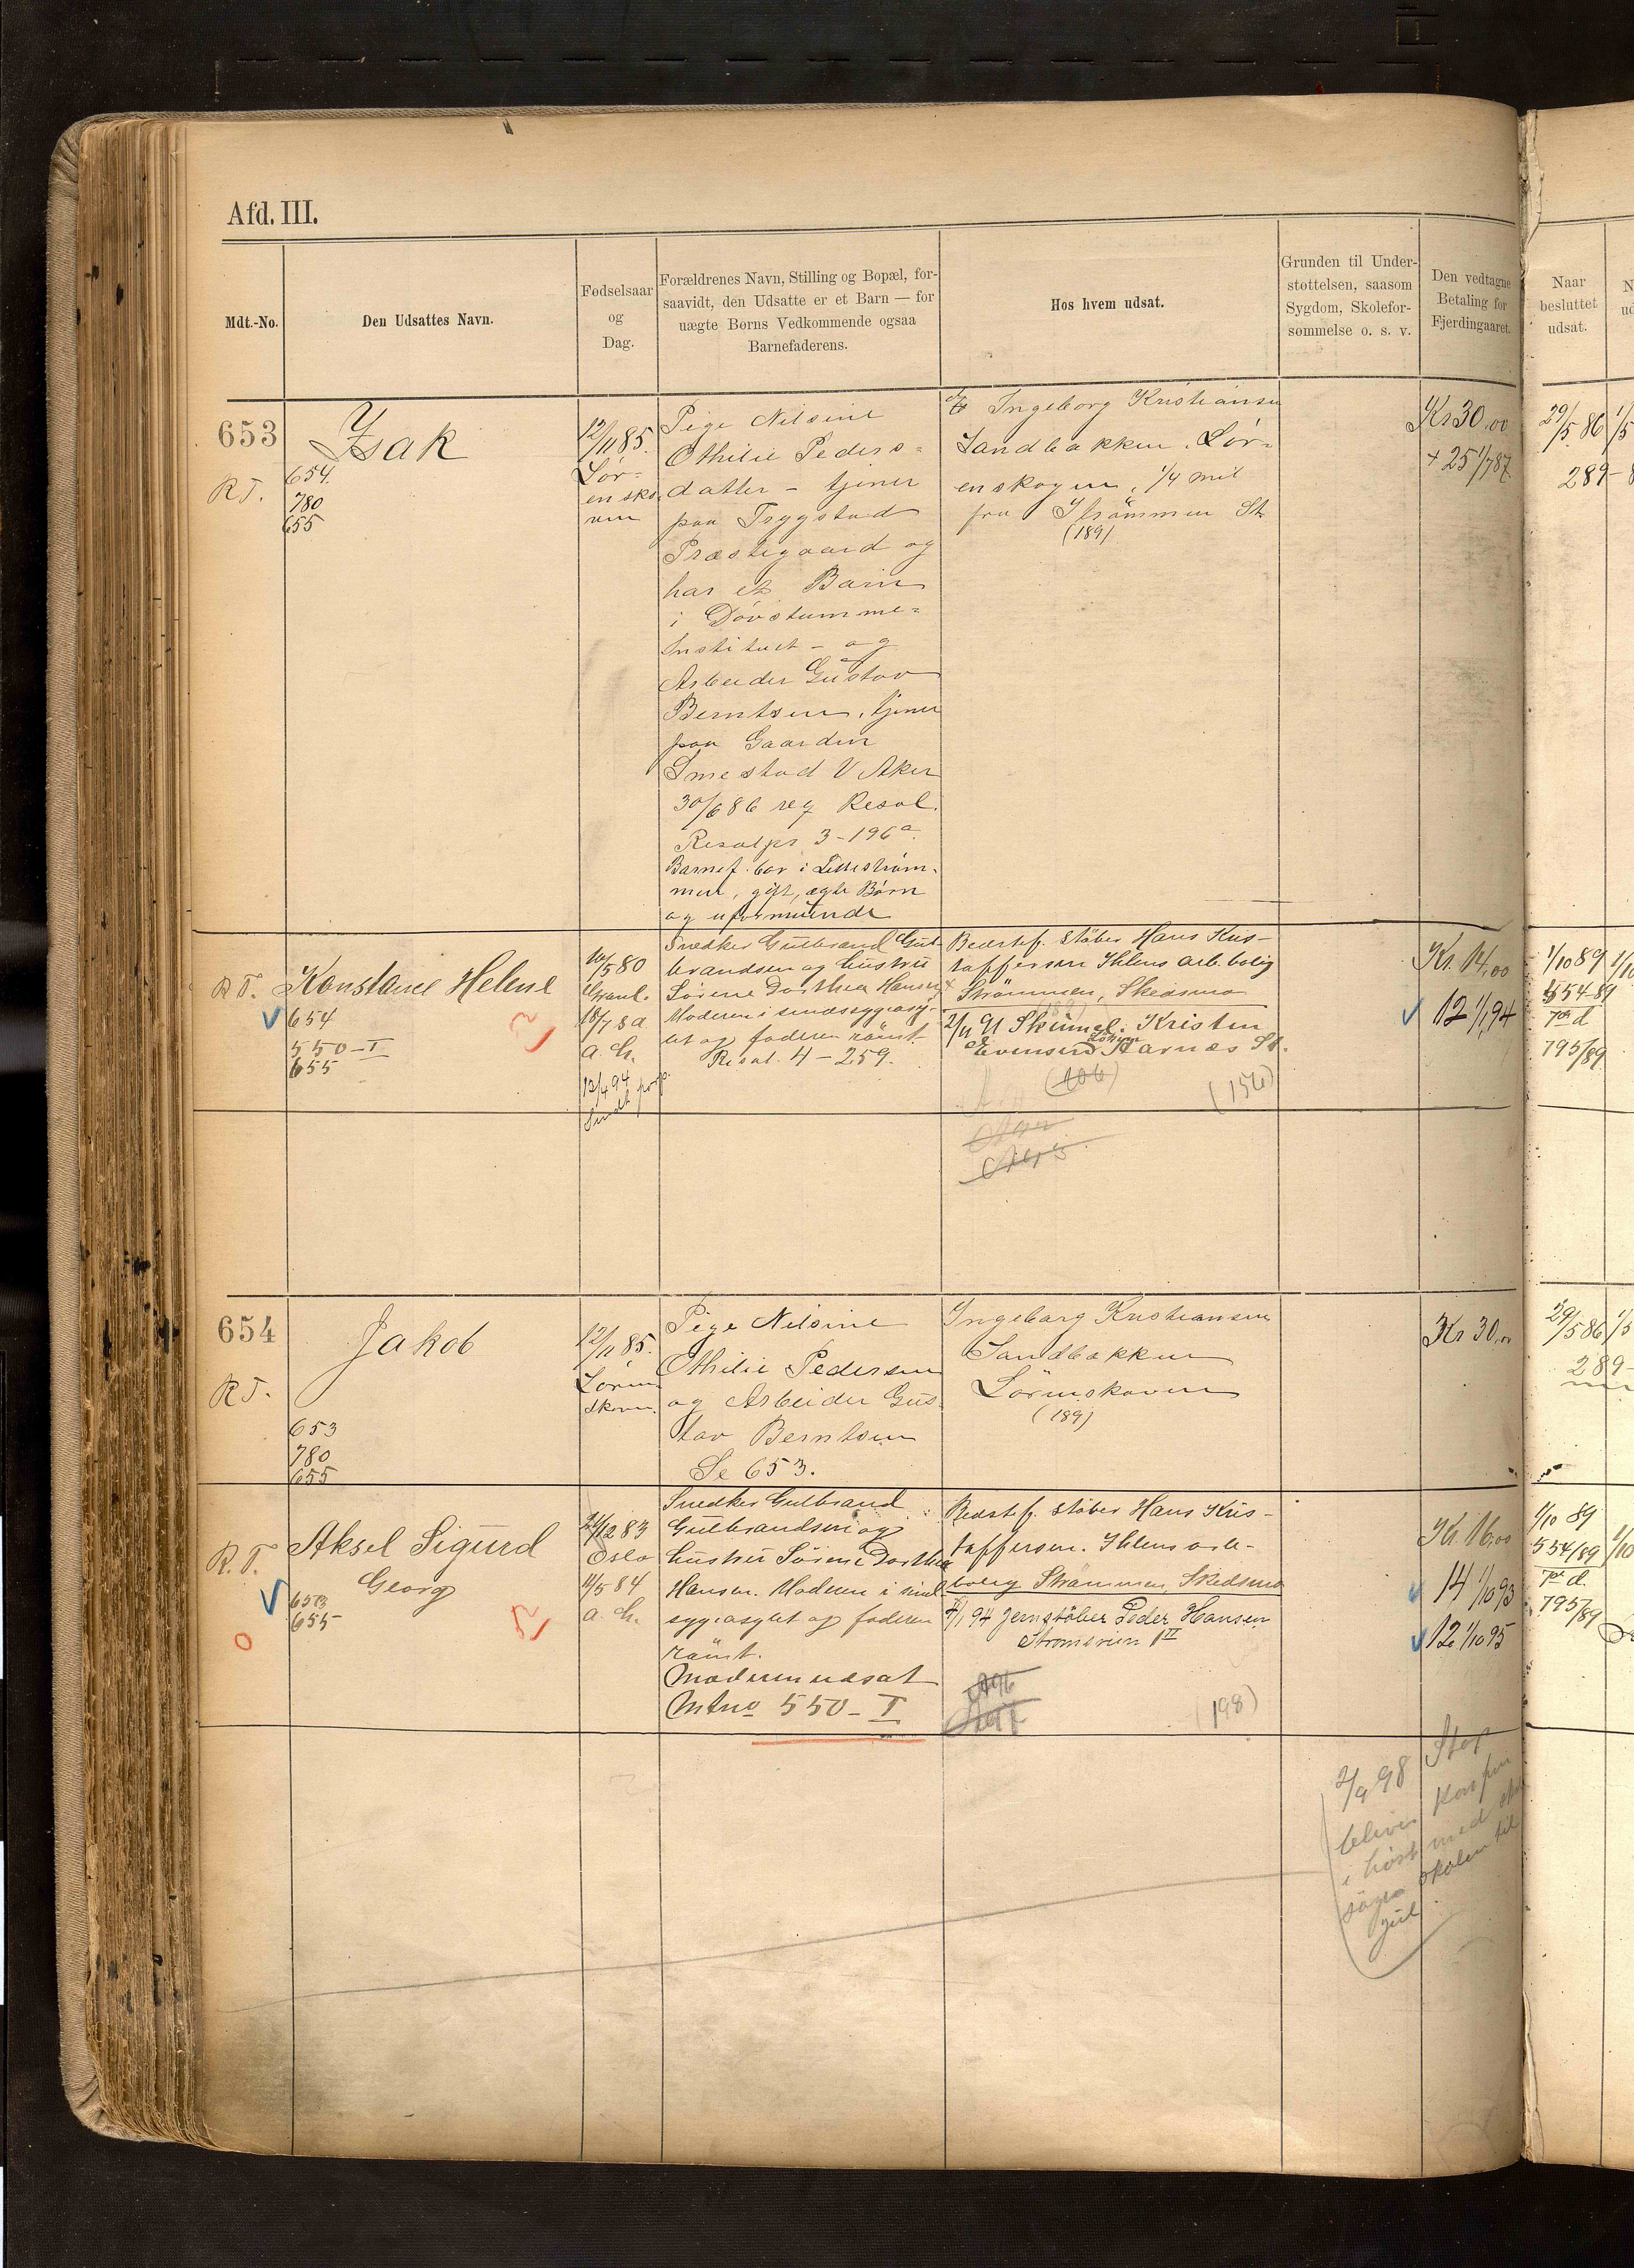 Afd. III.
Mdt.-No.
Den Udsattes Navn.
Fødselsaar
og
Dag.
Forældrenes Navn, Stilling og Bopæl, for-
saavidt, den Udsatte er et Barn — for
uægte Børns Vedkommende ogsaa
Barnefaderens.
Hos hvem udsat.
Grunden til Under-
støttelsen, saasom
Sygdom, Skolefor-
sømmelse o. s. v.
Den vedtagne
Betaling for
Fjerdingaaret.
Naar
besluttet
udsat.
653
R T.
Isak
654.
780
655
12/11 85.
Lör-
ensko
ven
Pige Nilsine
Othilie Peders-
datter - tjener
paa Trygstad
Præstegaard og
har et Barn
i Dövstumme-
Institutet - og
Arbeider Gustav
Berntsen, tjener
paa Gaarden
Smestad V Aker
30/6 86 reg Resol.
Resolpr 3-196a.
Barnef. bor i Lillestrøm-
men, gift, ægte Börn
og uformuende
Ingeborg Kristiansen
Sandbakken, Lör-
enskogen, 1/4 mil
fra Strömmen St
(189)
Kr 30,00
+ 25 1/7 87
29/5 86
289-8
R T.
Konstance Helene
654
550-I
655
10/5 80
18/7 80
a. ch.
12/4 94
Snedker Gulbrand Gul-
brandsen og hustru
Sörine Dorthea Hansen,
Moderen i sindssygeasy-
let og faderen römt
Resol. 4-259.
Bedstef. Stöber Hans Kris-
toffersen Ihlens arb. bolig
Strömmen, Skedsmo
(189)
2/11 91 Skinnel. Kristen
Evensen Aarnæs St.
(106)
(156)
Kr. 14,00
12 1/1 94
1/10 89
554-89
795/89
654
R T.
Jakob
653
780
655
12/11 85.
Lören
skoven.
Pige Nilsine
Othilie Pedersen
og Arbeider Gus-
tav Berntsen
Se 653.
Ingeborg Kristiansen
Sandbakken
Lörenskoven
(189)
Kr 30,00
29/5 86
289-
R. T.
Aksel Sigurd
Georg
653
655
21/12 83
Oslo
11/5 84
a. ch.
Snedker Gulbrand
Gulbrandsen og
hustru Sörine Dorthea
Hansen. Moderen i sind
sygeasylet og faderen
römt.
Moderen udsat
Mtno 550-I
Bedstef. Stöber Hans Kris-
toffersen. Ihlens arb-
bolig Strömmen, Skedsmo
1/1 94 Jernstöber Peder Hansen
(198)
Kr. 16,00
14 1/10 93
12 1/10 95
1/10 89
554/89
795/89
2/9 98 Stop
bliver konfir
i höst med
skolen til
jul